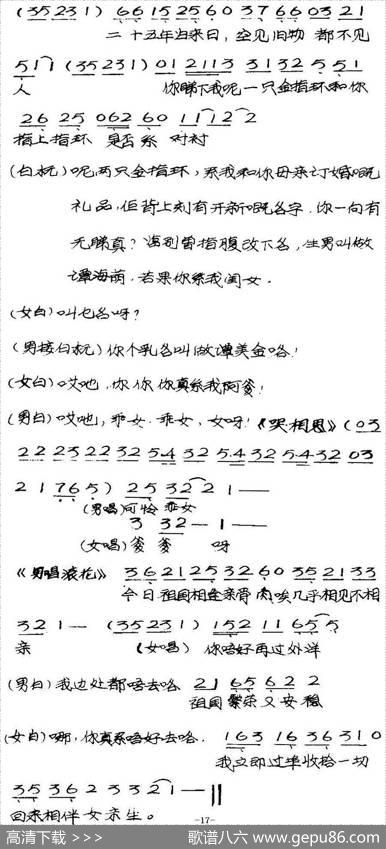 (35 23 1) 66 15 25 60 37 66 03 21
二十五年归来日，空见旧物 都不见
51 1 (35 23 1) 01 2113 3132 5 51
人 你睇下我呢一只金指环和你
26 25 062 60 11 2 2
指上指环 是否系 对衬
(白杬) 呢两只金指环，系我和你母亲订婚嘅
礼品，但背上刻有开新嘅名字．你一向有
无睇真？ 临别曾指腹改下名，生男叫做
谭海萌．若果你系我闺女．
(女白) 叫乜名呀？
(男接白杬) 你个乳名叫做谭美金咯！
(女白) 哎吔，你 你 你真系我阿爹！
(男白) 哎吔，乖女．乖女，女呀！《哭相思》(03
22 23 22 32 54 32 54 32 54 32 03
2 1 76 5) 25 32 2 1 —
(男唱) 可怜 乖女
3 32 — 1 —
(女唱) 爹 爹 呀
《男唱滚花》 36 21 25 32 60 35 21 33
今日 祖国相会亲骨肉 唉几乎相见不相
32 1 — (35 23 1) 152 11 65 5
亲 (女唱) 你唔好再过外洋
(男白) 我边处都唔去咯 21 65 62 2
祖国 繁荣又安稳
(女白) 哪，你真系唔好去咯． 163 16 36 31 0
我立即过埠收拾一切
35 36 2 3 3 2 1 — ||
回来相伴女亲生。
-17-
高清下载 >>>
歌谱八六 www.gepu86.com